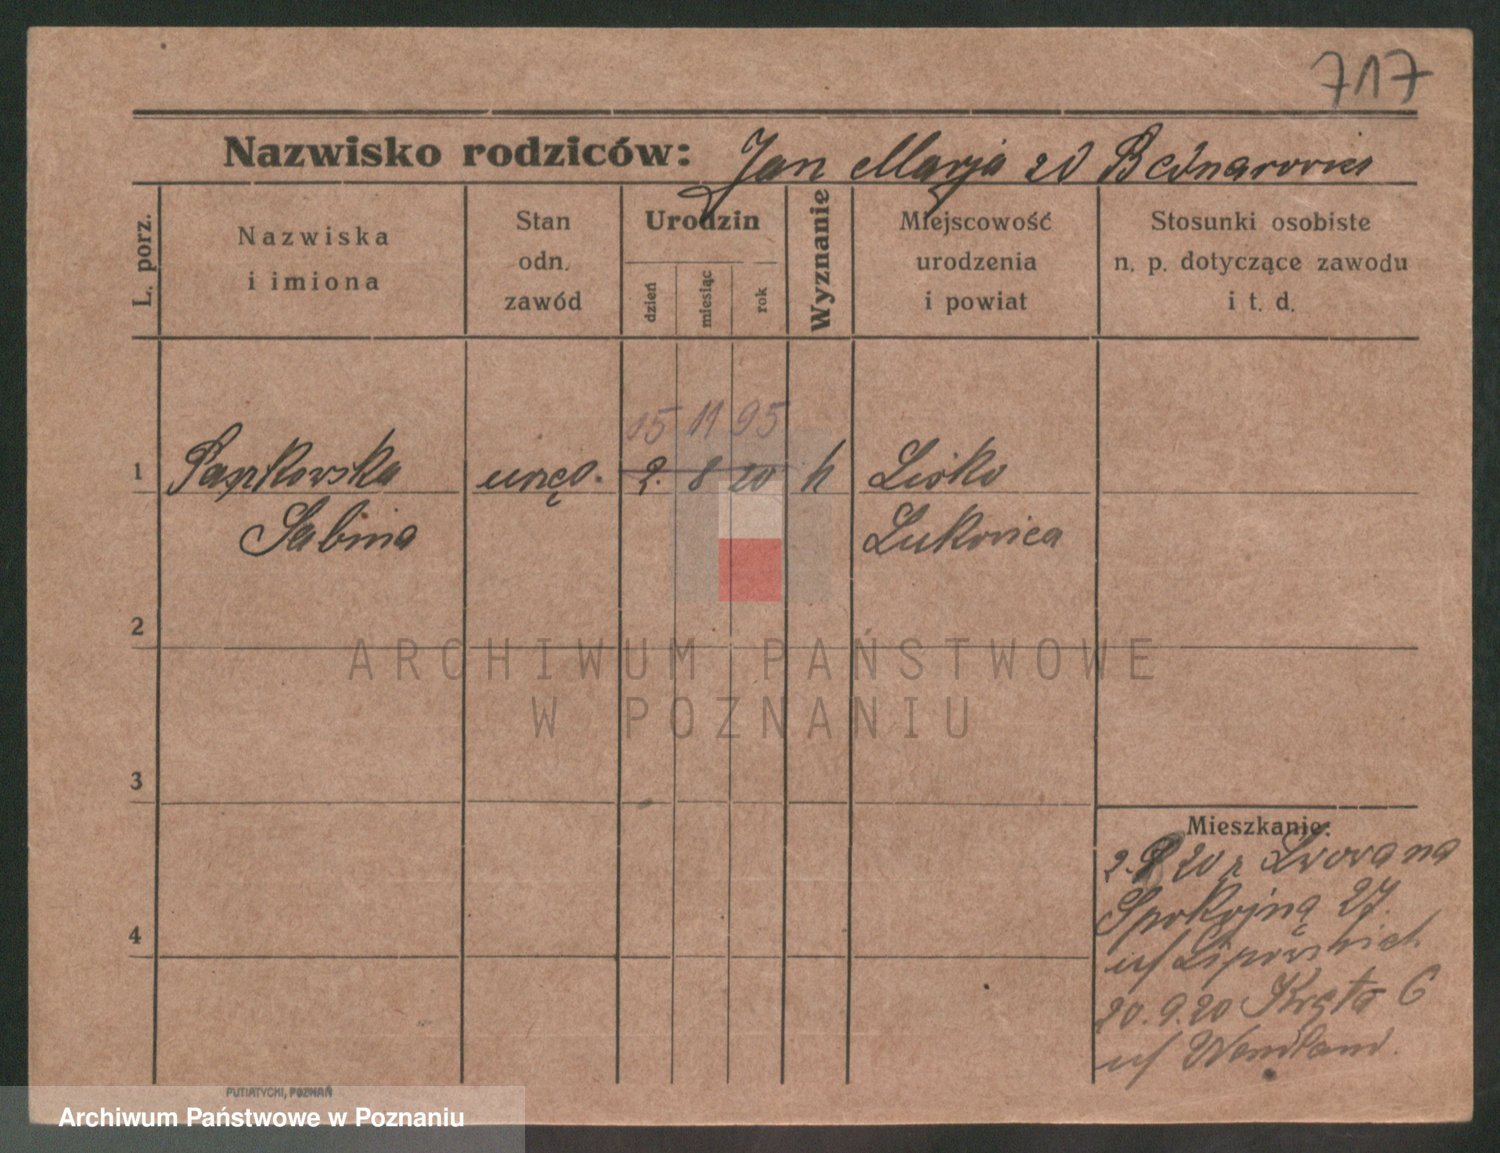 717
Nazwisko rodziców: Jan Marja zd Bednarowicz
L. porz.
Nazwiska
i imiona
Stan
odn.
zawód
Urodzin
dzień
miesiąc
rok
Wyznanie
Miejscowość
urodzenia
i powiat
Stosunki osobiste
n. p. dotyczące zawodu
i t. d.
15 11 95
1 urzęd. 2. 8 20 k Lisko
Sabina
2
ARCHIWUM PAŃSTWOWE
W POZNANIU
3
Mieszkanie:
2.8 20 z Lwowa na
Spokojną 27.
4
u/
20.9.20 Kręta 6
u/
PUTIATYCKI, POZNAŃ
Archiwum Państwowe w Poznaniu